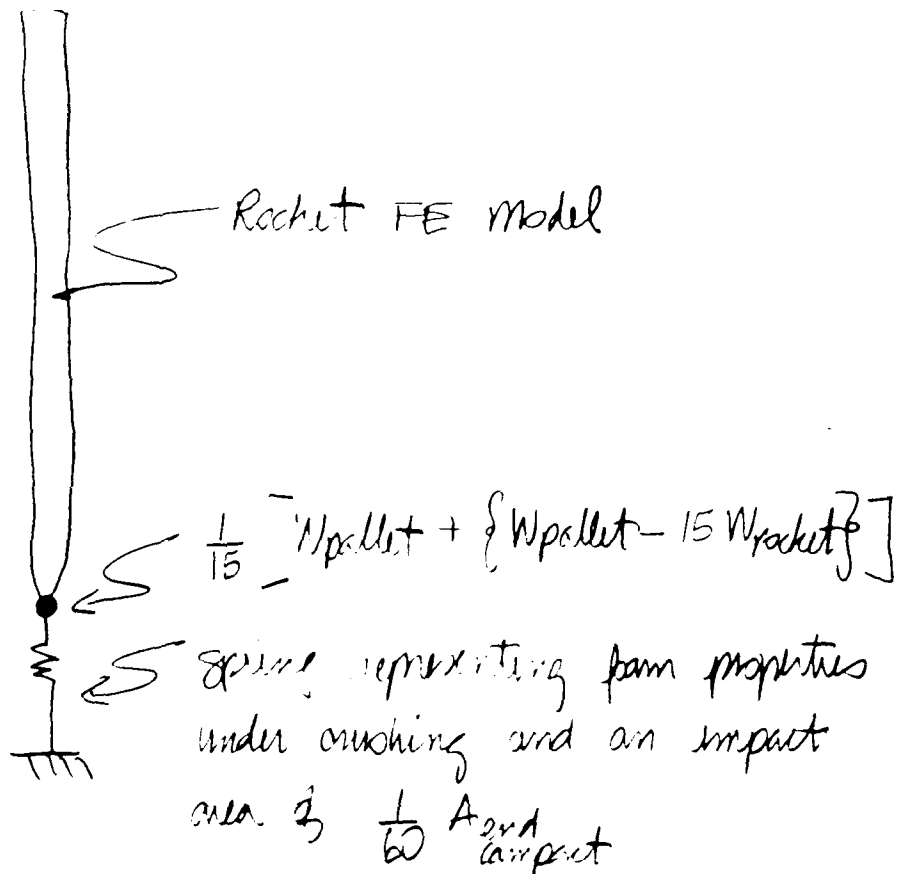 Rocket FE model
1/15 [Wpallet + {Wpallet - 15 Wrocket}]
Spring representing foam properties
under crushing and an impact
area of 1/60 A